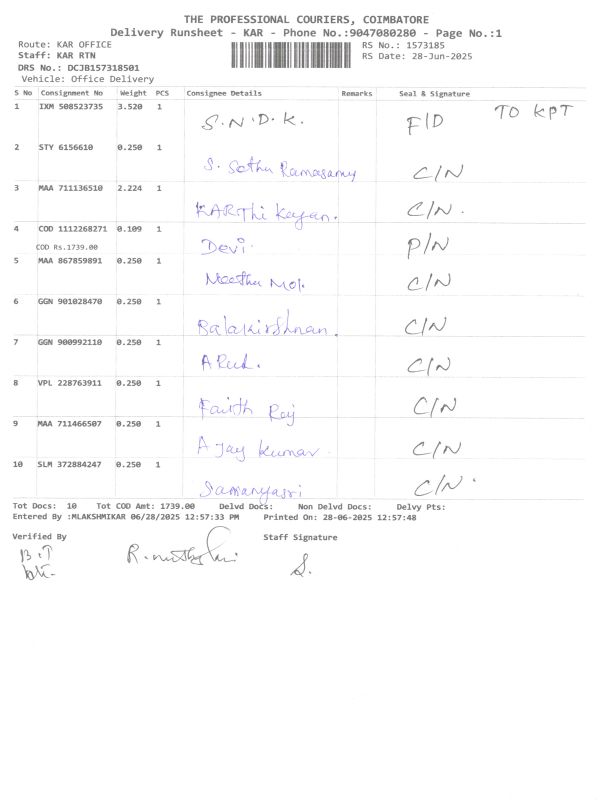 THE PROFESSIONAL COURIERS, COIMBATORE
Delivery Runsheet - KAR - Phone No.:9047080280 - Page No.:1
Route: KAR OFFICE RS No.: 1573185
Staff: KAR RTN RS Date: 28-Jun-2025
DRS No.: DCJB157318501
Vehicle: Office Delivery
S No Consignment No Weight PCS Consignee Details Remarks Seal & Signature
1 IXM 508523735 3.520 1 S.N.D.K. F/D TO KPT
2 STY 6156610 0.250 1 S. Sethu Ramasamy C/N
3 MAA 711136510 2.224 1 KARThiKeyan. C/N.
4 COD 1112268271 0.109 1 Devi. P/N
COD Rs.1739.00
5 MAA 867859891 0.250 1 Neethu Mol. C/N
6 GGN 901028470 0.250 1 Balakirshnan. C/N
7 GGN 900992110 0.250 1 C/N
8 VPL 228763911 0.250 1 Raj C/N
9 MAA 711466507 0.250 1 Ajay kumar C/N
10 SLM 372884247 0.250 1 Samanyasri C/N.
Tot Docs: 10 Tot COD Amt: 1739.00 Delvd Docs: Non Delvd Docs: Delvy Pts:
Entered By :MLAKSHMIKAR 06/28/2025 12:57:33 PM Printed On: 28-06-2025 12:57:48
Verified By Staff Signature